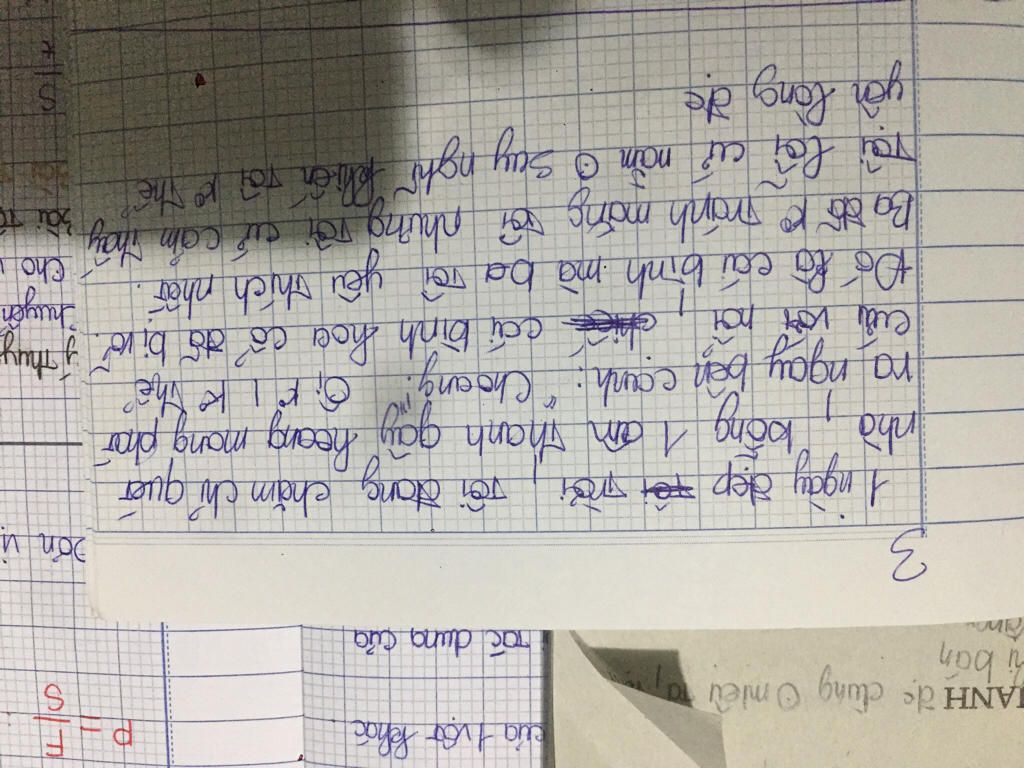 3
1 ngày đẹp trời, tôi đang chăm chỉ quét
nhà, bỗng 1 âm thanh gây hoang mang phát
ra ngay bên cạnh: "choang". Ôi k! k thể
cứu vớt nổi, cái bình hoa cổ đã bị vỡ.
Đó là cái bình mà ba tôi yêu thích nhất.
Ba đã k tránh mắng tôi nhưng tôi cứ cảm thấy
tội lỗi cứ nằm suy nghĩ khiến tôi k thể
yên lòng đc
của 1 vật khác
tác dụng của
P = F
S
đc dùng
miêu tả
bán
F
S
cho
huyện